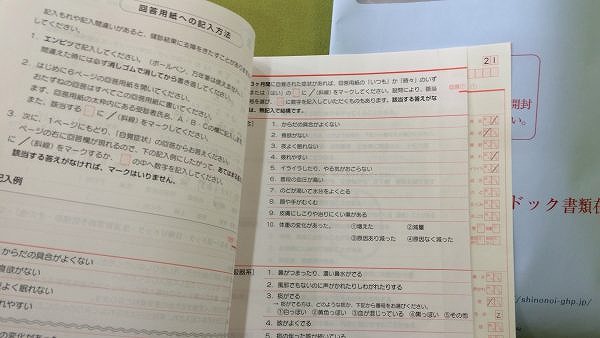 回答用紙への記入方法
記入もれや記入間違いがあると、健診結果に支障をきたすことがあります
1. エンピツで記入してください。（ボールペン、万年筆は使えません
間違えた時には必ず消しゴムで消してから書き直してください。
2. はじめに6ページの回答用紙を開いてください。
おたずねの回答はすべてこの回答用紙に書いてください。
まず、回答用紙の太枠内にある受診者氏名、A・B・Cの欄に記入しま
また、該当する□に／(斜線)をマークしてください。
3. 次に、1ページにもどり、「自覚症状」の回答からお答えください。
ページの右に回答欄が現れるので、下の記入例にしたがって、あてはまる
に／(斜線)をマークするか、□の中へ数字を記入してください。
該当する答えがなければ、マークはいりません。
記入例
からだの具合がよくない
食欲がない
夜よく眠れない
れやすい
の変化があった
3ヶ月間に自覚された症状があれば、回答用紙の「いつも」か「時々」のいず
または「はい」の□に／(斜線)をマークしてください。設問により、該当
を選び、□に数字を記入していただくものもあります。該当する答えがな
は、無記入で結構です。
21
1. からだの具合がよくない
2. 食欲がない
3. 夜よく眠れない
4. 疲れやすい
5. イライラしたり、やる気がおこらない
6. 普段の血圧が高い
7. のどが渇いて水分をよくとる
8. 顔や手がむくむ
9. 皮膚にしこりや治りにくい傷がある
10. 体重の変化があった。 ①増えた ②減量
③原因あり減った ④原因なく減った
吸器系]
1. 鼻がつまったり、濃い鼻水がでる
2. 風邪でもないのに声がかれたりしわがれたりする
3. 痰がでる
→ 痰がでる方は、どのような痰か、下記から番号をお選びください。
①白っぽい ②黄色っぽい ③血が混じっている ④黒っぽい ⑤その他
2
4. 咳がよくでる
開封
い。
ドック書類在
//shinonoi-ghp.jp/